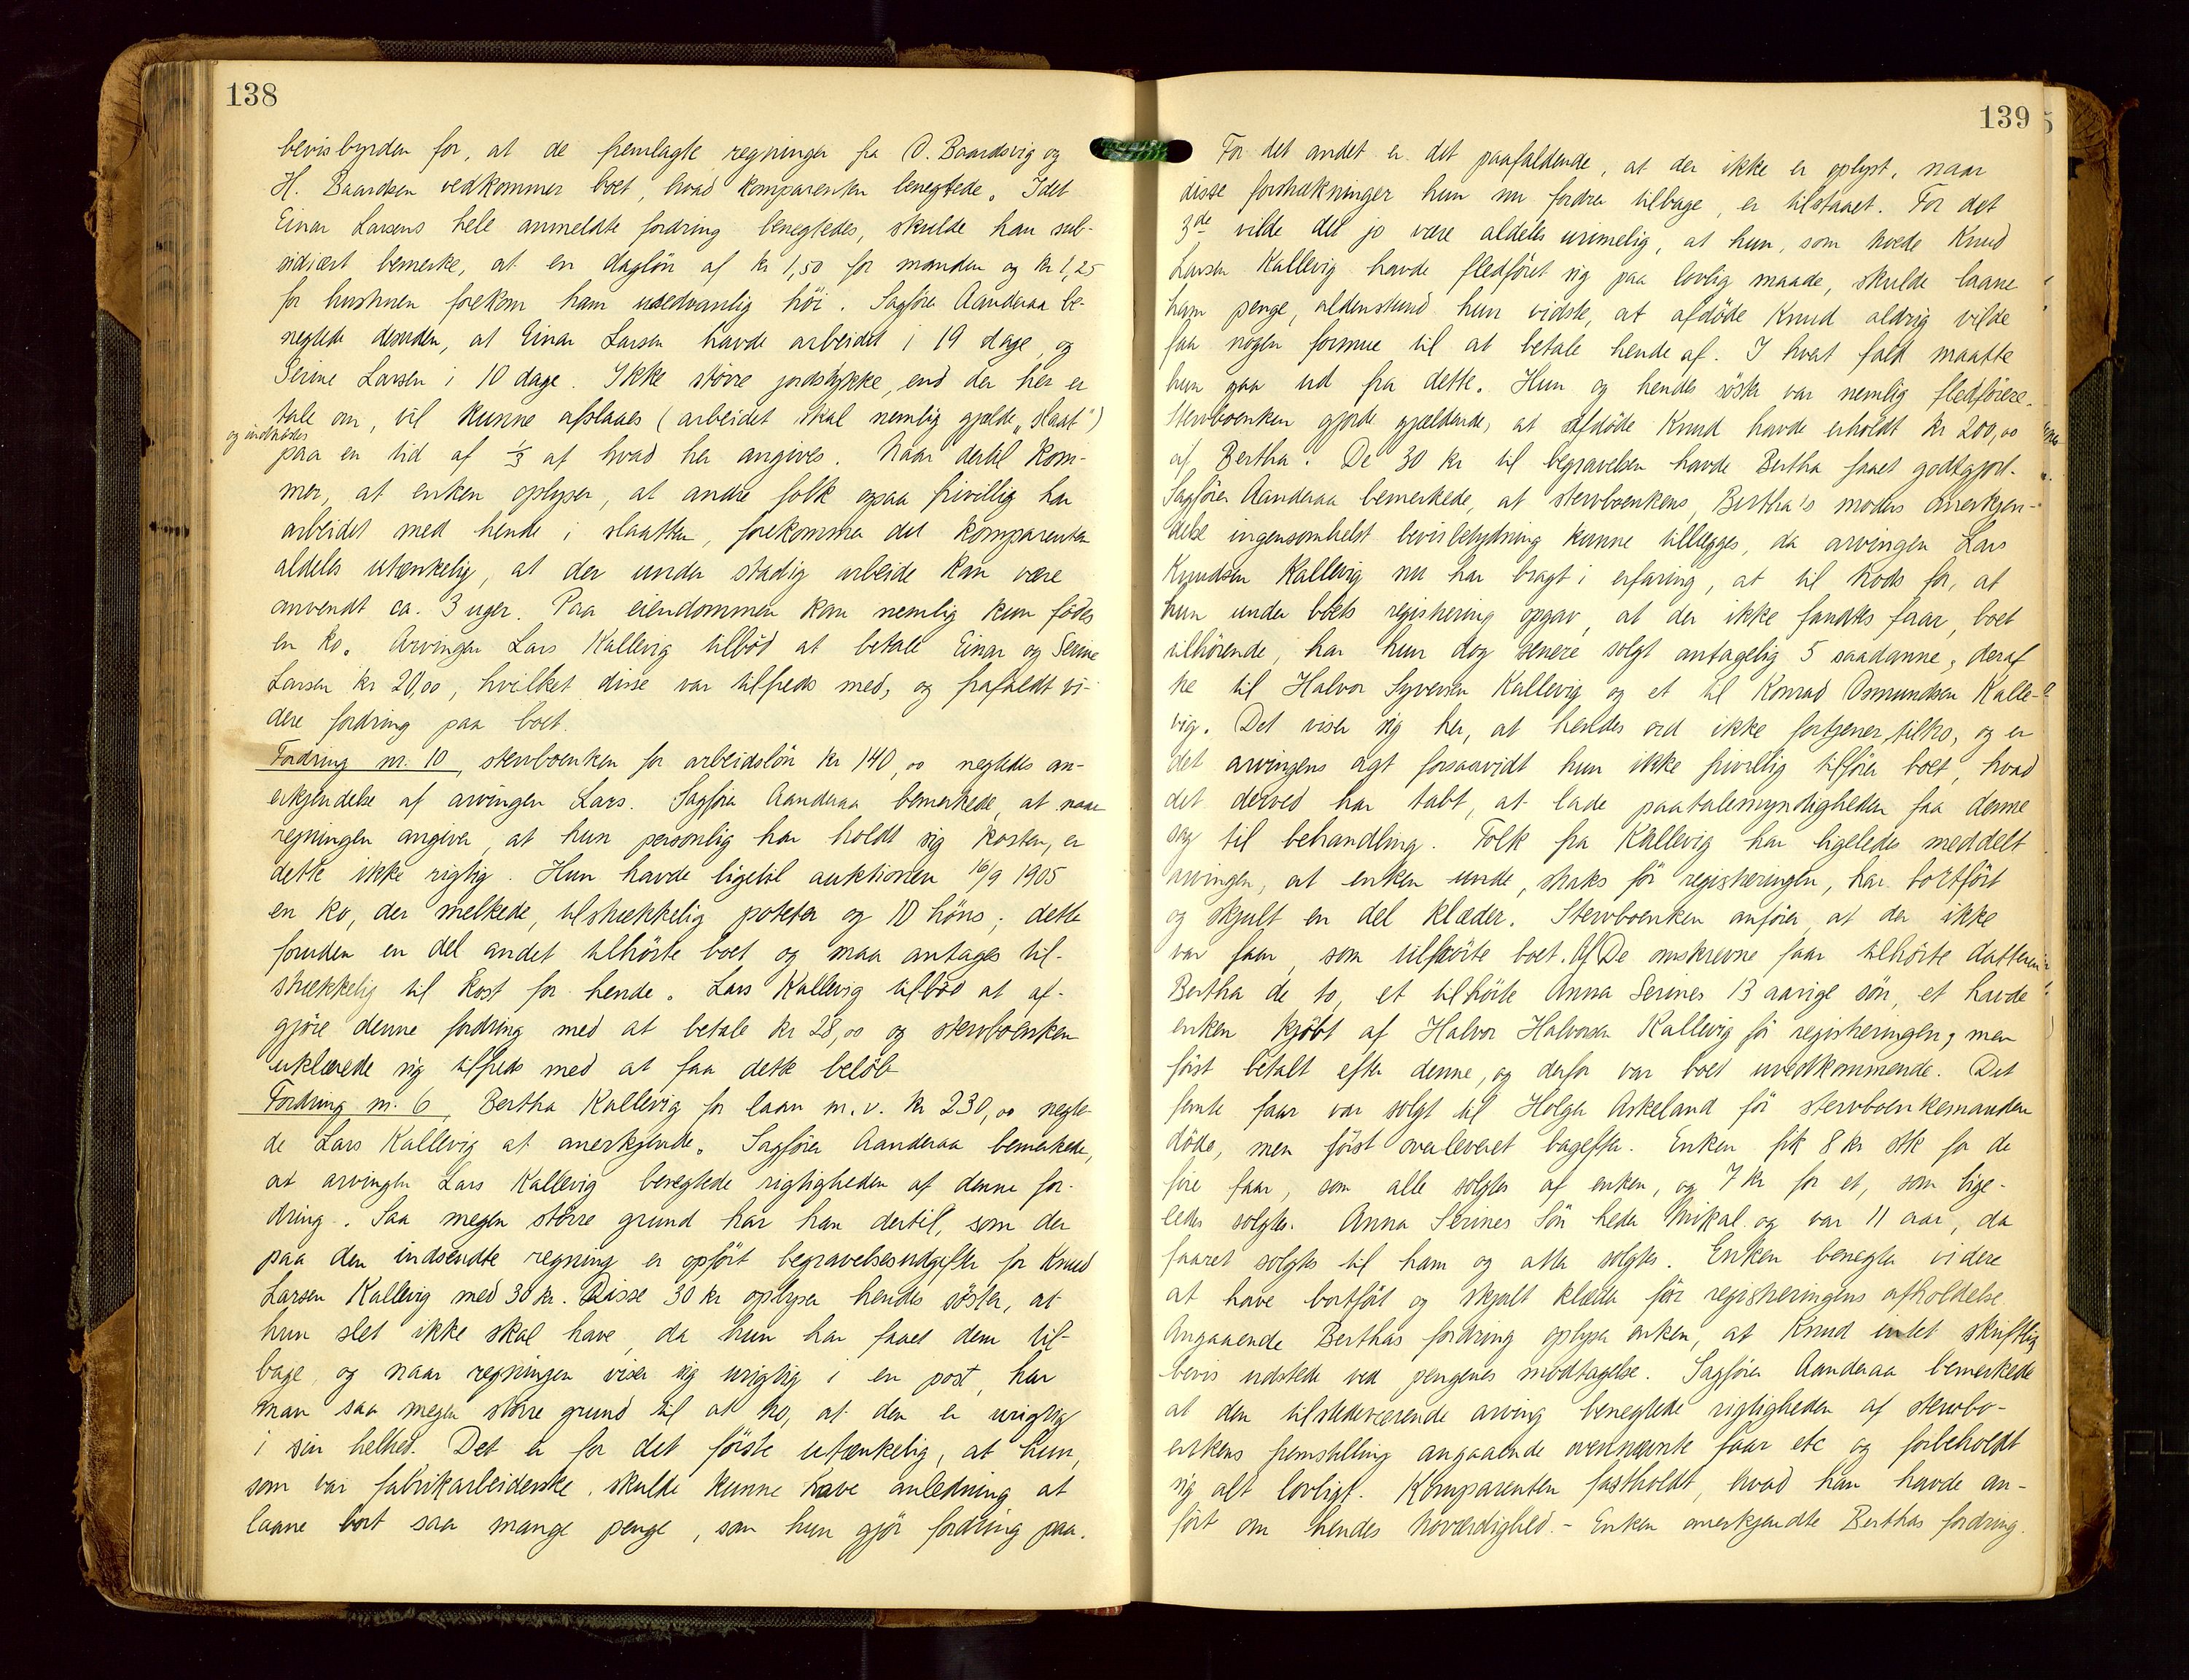 138
bevisbyrden for, at de fremlagte regninger fra O. Baardsvig og
H. Baardsen vedkommer boet, hvad komparenten benegtede. Idet
Einar Larsens hele anmeldte fordring benegtedes, skulde han sub-
sidiært bemerke, at en daglön af kr 1,50 for manden og kr 1,25
for hustruen forekom ham usedvanlig höi. Sagförer Aanderaa be-
negtede desuden, at Einar Larsen havde arbeidet i 19 dage, og
Serine Larsen i 10 dage. Ikke större jordstykke, end der her er
tale om, vil kunne afslaaes (arbeidet skal nemlig gjælde „slaat")
og indhöstes
paa en tid af 1/3 af hvad her angives. Naar dertil kom-
mer, at enken oplyser, at andre folk ogsaa frivillig har
arbeidet med hende i slaatten, forekommer det komparenten
aldeles utænkelig, at der under stadig arbeide kan være
anvendt ca. 3 uger. Paa eiendommen kan nemlig kun födes
en ko. Arvingen Lars Kallevig tilböd at betale Einar og Serine
Larsen kr 20,00, hvilket disse var tilfreds med, og frafaldt vi-
dere fordring paa boet.
Fordring nr. 10, stervboenken for arbeidslön kr 140,00 negtedes an-
erkjendelse af arvingen Lars. Sagförer Aanderaa bemerkede, at naar
regningen angiver, at hun personlig har holdt sig kosten, er
dette ikke rigtig. Hun havde ligetil auktionen 16/9 1905
en ko, der melkede, tilstrækkelig poteter og 10 höns; dette
foruden en del andet tilhörte boet og maa antages til-
strækkelig til kost for hende. Lars Kallevig tilböd at af-
gjöre denne fordring med at betale kr 28,00 og stervboenken
erklærede sig tilfreds med at faa dette belöb
Fordring nr. 6, Bertha Kallevig for laan m.v. kr 230,00 negte-
de Lars Kallevig at anerkjende. Sagförer Aanderaa bemerkede,
at arvingen Lars Kallevig benegtede rigtigheden af denne for-
dring. Saa megen större grund har han dertil, som der
paa den indsendte regning er opfört begravelsesudgifter for Knud
Larsen Kallevig med 30 kr. Disse 30 kr oplyser hendes söster, at
hun slet ikke skal have, da hun har faaet dem til-
bage, og naar regningen viser sig urigtig i en post, har
man saa megen större grund til at tro, at den er urigtig
i sin helhed. Det er for det förste utænkelig, at hun,
som var fabrikarbeiderske, skulde kunne have anledning at
laane bort saa mange penge, som hun gjör fordring paa.
139
For det andet er det paafaldende, at der ikke er oplyst, naar
disse forstrækninger hun nu fordrer tilbage, er tilstaaet. For det
3de vilde det jo være aldeles urimelig, at hun, som hvede Knud
Larsen Kallevig havde fledföret sig paa lovlig maade, skulde laane
ham penge, aldenstund hun vidste, at afdöde Knud aldrig vilde
faa nogen formue til at betale hende af. I hvert fald maatte
hun gaa ud fra dette. Hun og hendes söster var nemlig fledförere.
Stervboenken gjorde gjældende, at afdöde Knud havde erholdt kr 200,00
af Bertha. De 30 kr til begravelsen havde Bertha faaet godtgjort.
Sagförer Aanderaa bemerkede, at stervboenkens, Bertha's moders anerkjen-
delse ingensomhelst bevisbetydning kunne tillægges, da arvingen Lars
Knudsen Kallevig nu har bragt i erfaring, at til trods for, at
hun under boets registrering opgav, at der ikke fandtes faar, boet
tilhörende, har hun dog senere solgt antagelig 5 saadanne, deraf
tre til Halvor Syversen Kallevig og et til Konrad Osmundsen Kalle-
vig. Det viser sig her, at hendes ord ikke fortjener tiltro, og er
det arvingens agt forsaavidt hun ikke frivillig tilförer boet, hvad
det derved har tabt, at lade paatalemyndigheden faa denne
sag til behandling. Folk fra Kallevig har ligeledes meddelt
arvingen, at enken unde, straks för registreringen, har bortfört
og skjult en del klæder. Stervboenken anförer, at der ikke
var faar, som tilhörte boet. Af De omskrevne faar tilhörte datteren
Bertha de to, et tilhörte Anna Serines 13 aarige sön, et havde
enken kjöbt af Halvor Halvorsen Kallevig för registreringen, men
först betalt efter denne, og derfor var boet uvedkommende. Det
femte faar var solgt til Holger Askeland för stervboenkemanden
döde, men först overleveret bagefter. Enken fik 8 kr stk for de
fire faar, som alle solgtes af enken, og 7 kr for et, som lige-
ledes solgtes. Anna Serines Sön heder Mikal og var 11 aar, da
faaret solgtes til ham og atter solgtes. Enken benegter videre
at have bortfört og skjult klæder för registreringens afholdelse.
Angaaende Berthas fordring oplyser enken, at Knud intet skriftlig
bevis udstede ved pengenes modtagelse. Sagförer Aanderaa bemerkede
at den tilstedeværende arving benegtede rigtigheden af stervbo-
enkens fremstilling angaaende ovennævnte faar etc og forbeholdt
sig alt lovligt. Komparenten fastholdt, hvad han havde an-
fört om hendes troværdighed. - Enken anerkjendte Berthas fordring.